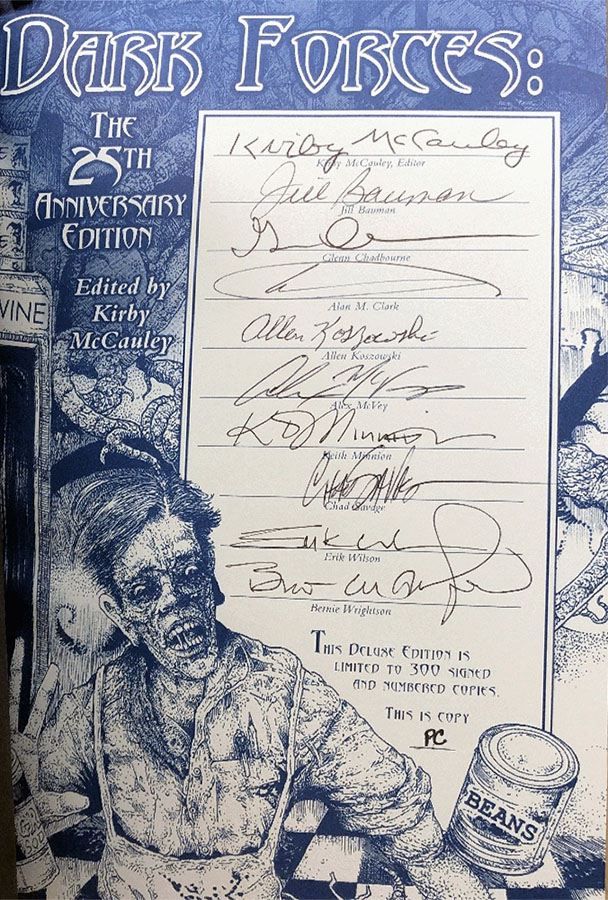 DARK FORCES:
THE
25TH
ANNIVERSARY
EDITION
Edited by
Kirby
McCauley
WINE
Kirby McCauley
Kirby McCauley, Editor
Jill Bauman
Jill Bauman
Glenn Chadbourne
Alan M. Clark
Allen Koszowski
Allen Koszowski
Alex McVey
Alex McVey
KD Minnion
Keith Minnion
Chad Savage
Chad Savage
Erik Wilson
Erik Wilson
Bernie Wrightson
THIS DELUXE EDITION IS
LIMITED TO 300 SIGNED
AND NUMBERED COPIES.
THIS IS COPY
PC
BEANS